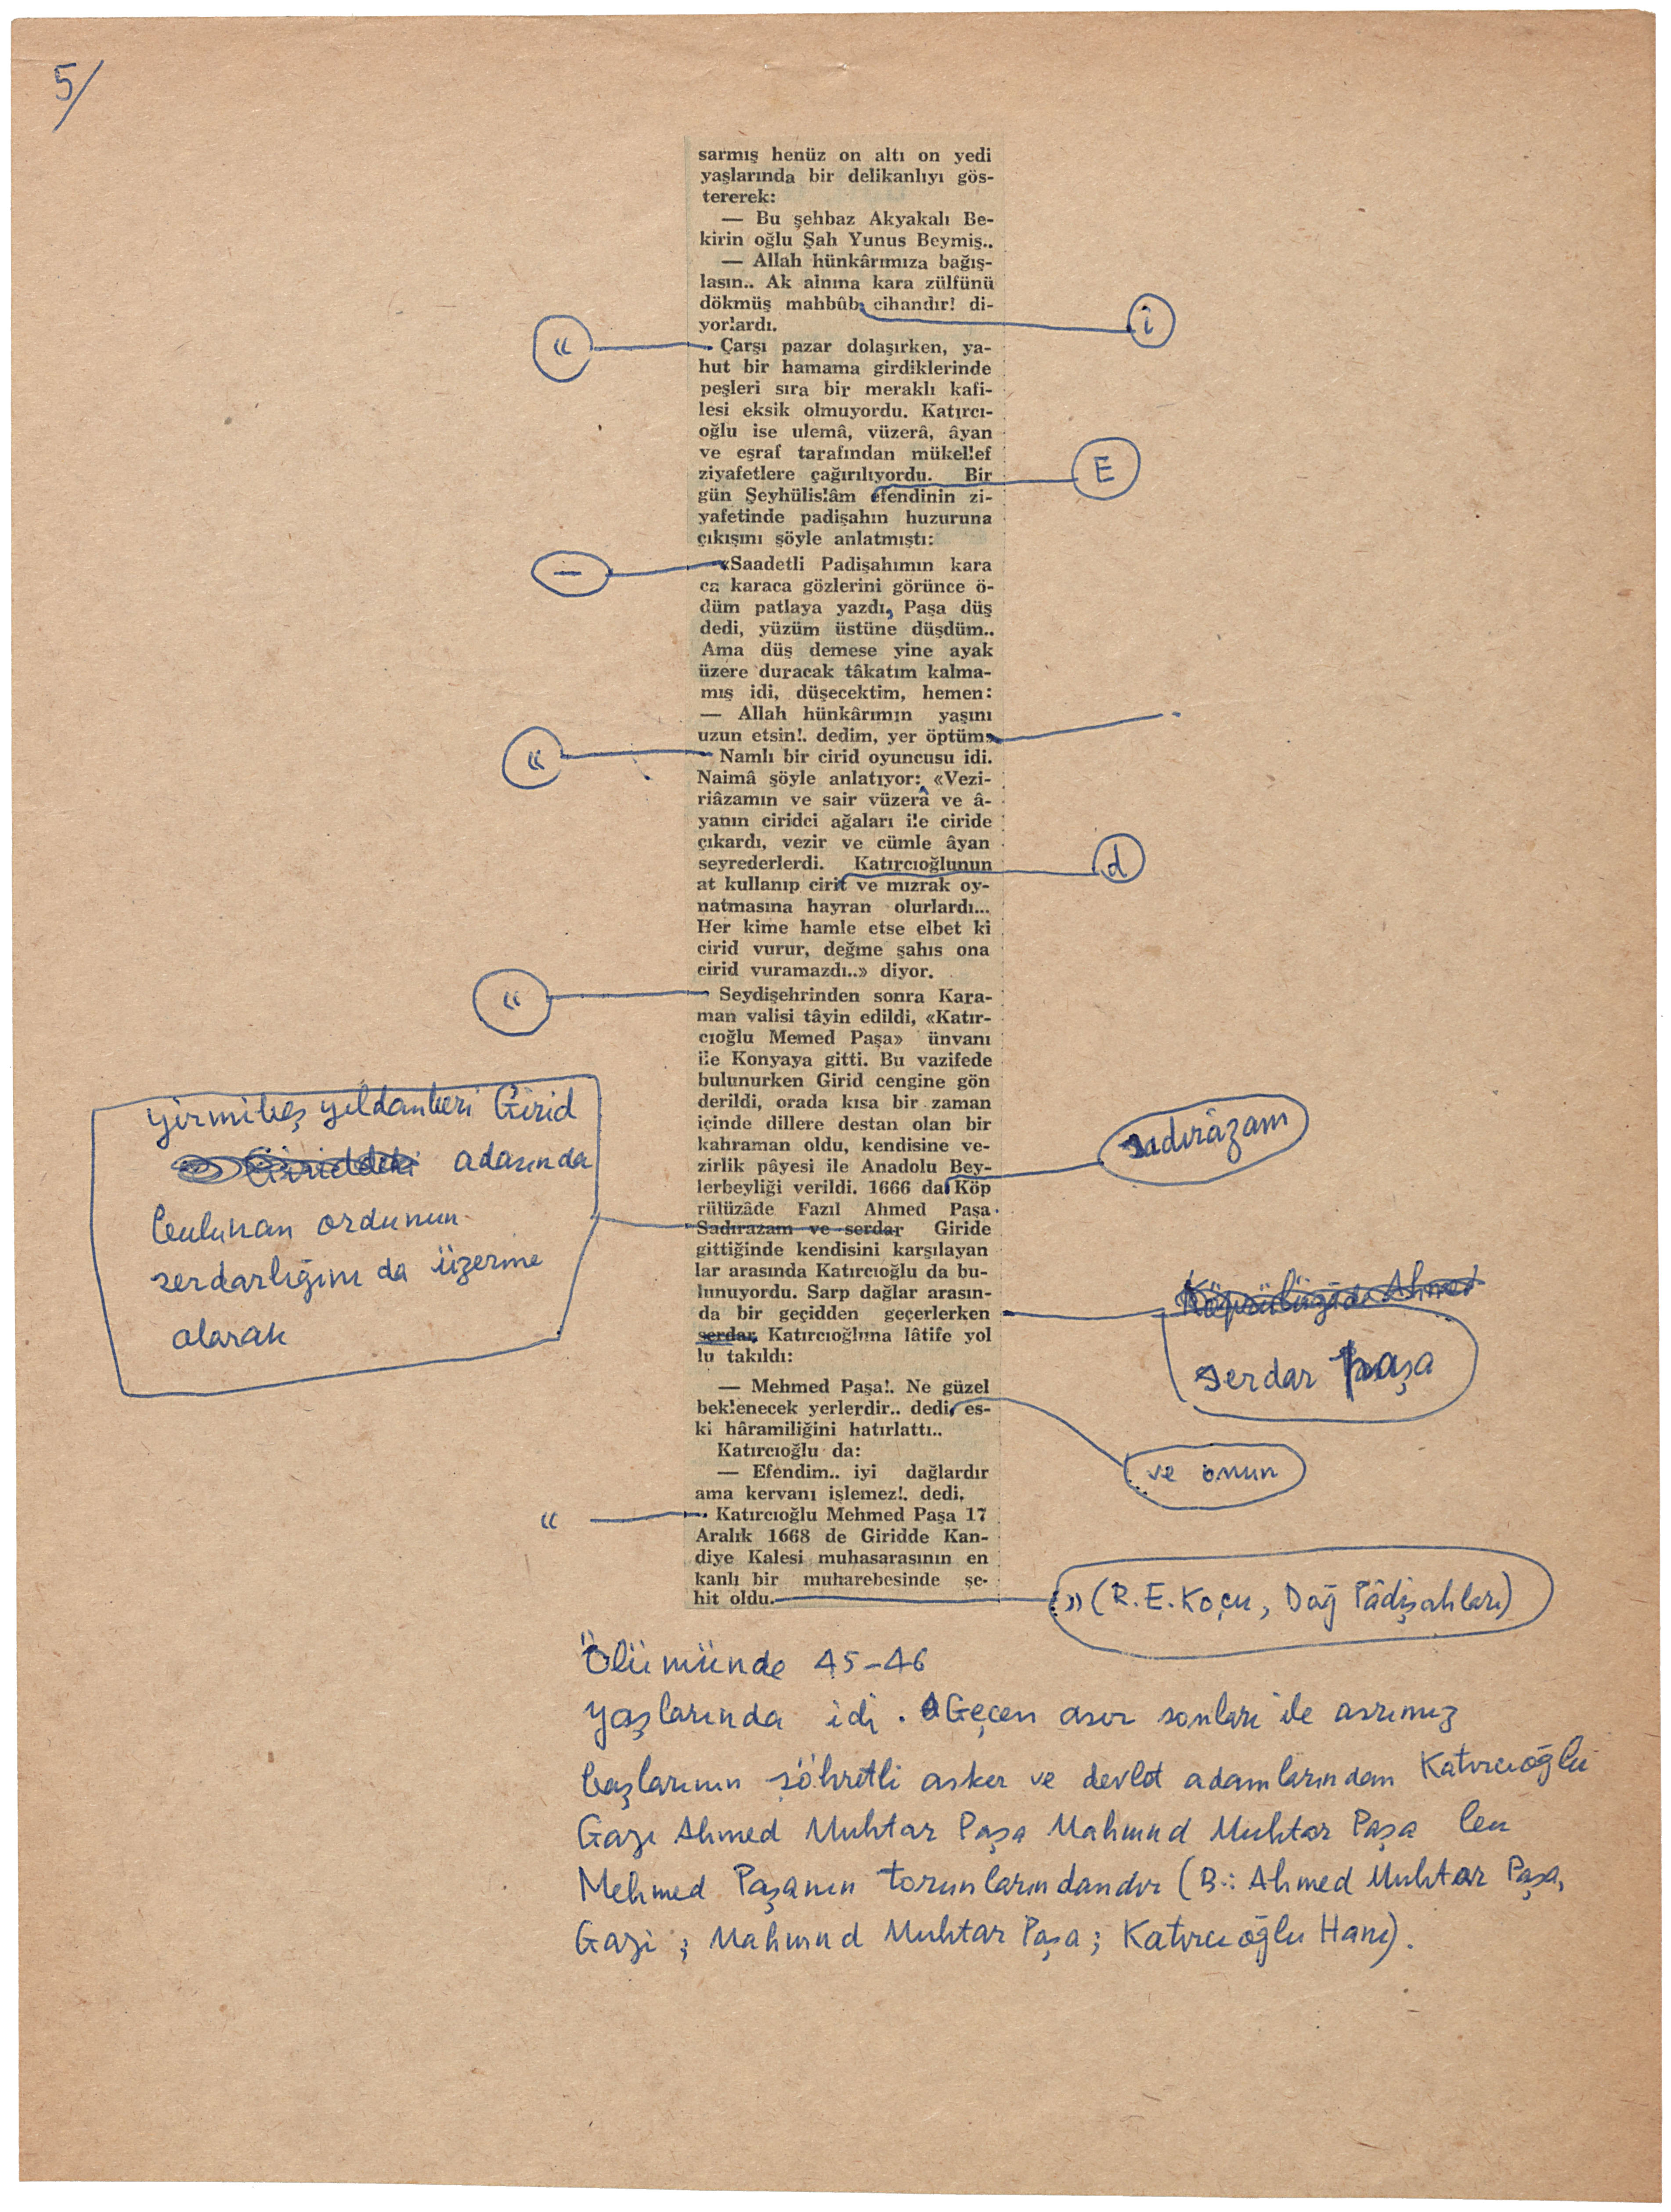 5/
sarmış henüz on altı on yedi
yaşlarında bir delikanlıyı gös-
tererek:
— Bu şehbaz Akyakalı Be-
kirin oğlu Şah Yunus Beymiş..
— Allah hünkârımıza bağış-
lasın.. Ak alnına kara zülfünü
dökmüş mahbûb cihandır! di-
yorlardı.
i
«
Çarşı pazar dolaşırken, ya-
hut bir hamama girdiklerinde
peşleri sıra bir meraklı kafi-
lesi eksik olmuyordu. Katırcı-
oğlu ise ulemâ, vüzerâ, âyan
ve eşraf tarafından mükellef
ziyafetlere çağırılıyordu. Bir
gün Şeyhülislâm efendinin zi-
yafetinde padişahın huzuruna
çıkışını şöyle anlatmıştı:
E
—
«Saadetli Padişahımın kara
ca karaca gözlerini görünce ö-
düm patlaya yazdı, Paşa düş
dedi, yüzüm üstüne düşdüm..
Ama düş demese yine ayak
üzere duracak tâkatım kalma-
mış idi, düşecektim, hemen:
— Allah hünkârımın yaşını
uzun etsin!. dedim, yer öptüm»
.
«
Namlı bir cirid oyuncusu idi.
Naimâ şöyle anlatıyor: «Vezi-
riâzamın ve sair vüzerâ ve â-
yanın ciridci ağaları ile ciride
çıkardı, vezir ve cümle âyan
seyrederlerdi. Katırcıoğlunun
at kullanıp cirit ve mızrak oy-
natmasına hayran olurlardı...
Her kime hamle etse elbet ki
cirid vurur, değme şahıs ona
cirid vuramazdı..» diyor.
d
«
Seydişehrinden sonra Kara-
man valisi tâyin edildi, «Katır-
cıoğlu Memed Paşa» ünvanı
ile Konyaya gitti. Bu vazifede
bulunurken Girid cengine gön
derildi, orada kısa bir zaman
içinde dillere destan olan bir
kahraman oldu, kendisine ve-
zirlik pâyesi ile Anadolu Bey-
lerbeyliği verildi. 1666 da Köp
rülüzâde Fazıl Ahmed Paşa
Sadırazam ve serdar Giride
gittiğinde kendisini karşılayan
lar arasında Katırcıoğlu da bu-
lunuyordu. Sarp dağlar arasın-
da bir geçidden geçerlerken
serdar Katırcıoğluna lâtife yol
lu takıldı:
yirmibeş yıldanberi Girid
Giriddeki adasında
bulunan ordunun
serdarlığını da üzerine
alarak
sadırâzam
Köprülüzâde Ahmed
serdar paşa
— Mehmed Paşa!. Ne güzel
beklenecek yerlerdir.. dedi, es-
ki hâramiliğini hatırlattı..
Katırcıoğlu da:
— Efendim.. iyi dağlardır
ama kervanı işlemez!. dedi.
ve onun
«
Katırcıoğlu Mehmed Paşa 17
Aralık 1668 de Giridde Kan-
diye Kalesi muhasarasının en
kanlı bir muharebesinde şe-
hit oldu.
» (R. E. Koçu, Dağ Pâdişahları)
Ölümünde 45-46
yaşlarında idi. Geçen asır sonları ile asrımız
başlarının şöhretli asker ve devlet adamlarından Katırcıoğlu
Gazi Ahmed Muhtar Paşa Mahmud Muhtar Paşa bu
Mehmed Paşanın torunlarındandır (B.: Ahmed Muhtar Paşa,
Gazi ; Mahmud Muhtar Paşa ; Katırcıoğlu Hanı).